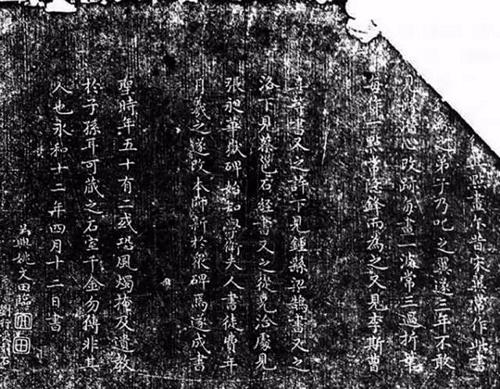 點畫尒昔宋翼常作此書
之弟子乃叱之翼遂三年不敢
潛心改跡每畫一波常三過折筆
每作一點常隱鋒而為之又見李斯曹
喜等書又之許下見鍾繇梁鵠書又之
洛下見蔡邕石經書又之從兄洽處見
張昶華嶽碑始知學衛夫人書徒費年
月羲之遂改本師新於眾碑焉遂成書
聖時年五十有二或恐風燭掩及遺教
於子孫耳可藏之石室千金勿傳非其
人也永和十二年四月十二日書
吳興姚文田臨